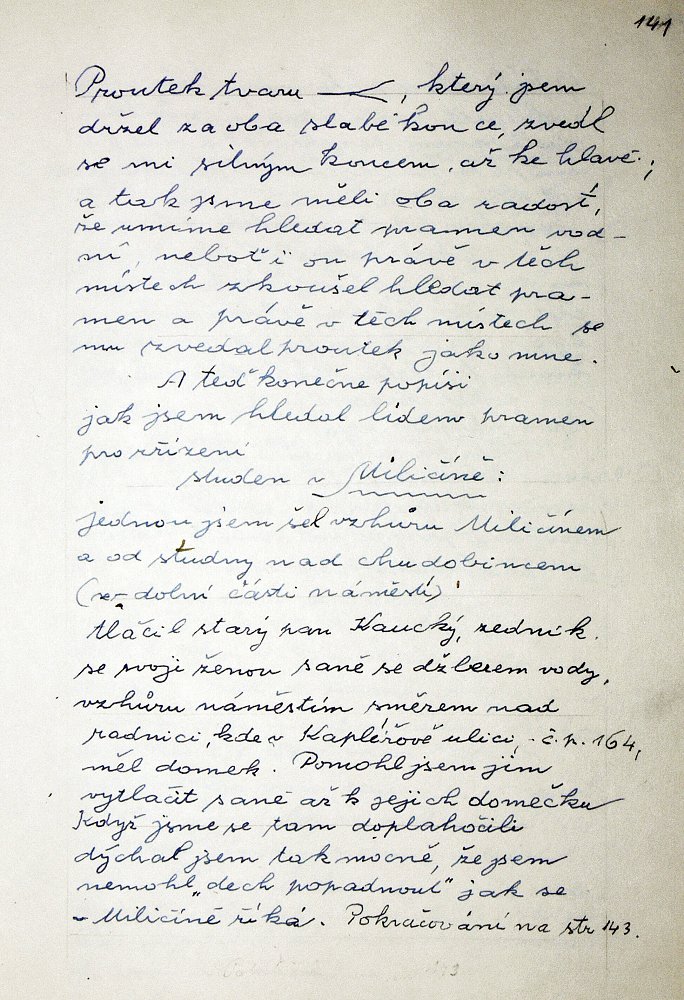 141
Proutek tvaru , který jsem
držel za oba slabé konce, zvedl
se mi silným koncem, až ke hlavě;
a tak jsme měli oba radost,
že umíme hledat pramen vod-
ní, neboť i on právě v těch
místech zkoušel hledat pra-
men a právě v těch místech se
mu zvedal proutek jako mne.
A teď konečne popíši
jak jsem hledal lidem pramen
pro zřízení
studen v Miličíně:
jednou jsem šel vzhůru Miličínem
a od studny nad chudobincem
(v dolní části náměstí)
tláčil starý pan Kaucký, zedník.
se svojí ženou saně se džberem vody,
vzhůru náměstím směrem nad
radnici, kde v Kaplířově ulici, č.p. 164,
měl domek. Pomohl jsem jim
vytlačit saně až k jejich domečku
Když jsme se tam doplahočili
dýchal jsem tak mocně, že jsem
nemohl „dech popadnout" jak se
v Miličíně říká. Pokračování na str 143.